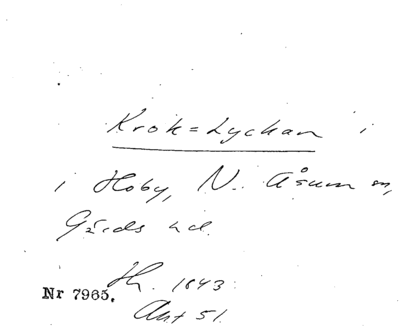 Krok=Lyckan i
i Hoby, N. Åsum sn,
Gärds hd.
Hh. 1843
Nr 7965.
Akt 51.